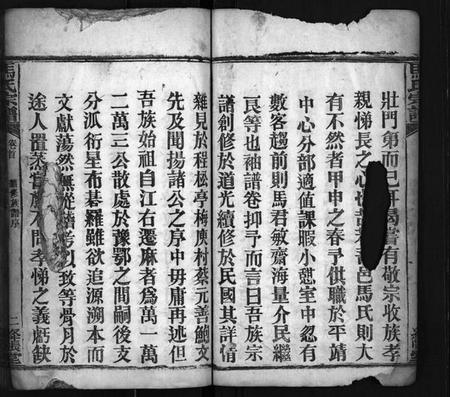 壯門第而已耳曷嘗有敬宗收族孝
親悌長之心哉若善邑馬氏則大
有不然者甲申之春予供職於平靖
中心分部適值課暇小憩室中忽有
數客趨前則馬君敏齋海量介民繼
良等也袖譜卷抑予而言曰吾族宗
譜創修於道光續修於民國其詳情
雜見於程松亭梅庾村蔡元善鮑文
先及聞揚諸公之序中毋庸再述但
吾族始祖自江右遷麻者為萬一萬
二萬三公散處於豫鄂之間嗣後支
分派衍星布碁羅雖欲追源溯本而
文獻蕩然無從稽考以致等骨月於
途人置蒸嘗於不問孝悌之義虧缺
馬氏宗譜
卷首
序
二